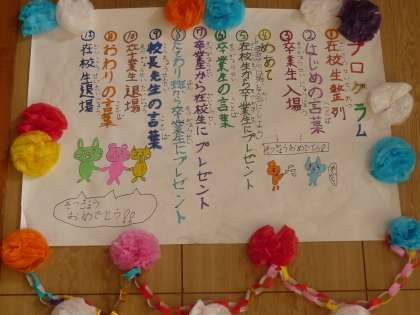 プログラム
①在校生整列
②はじめの言葉
③卒業生入場
④めあて
⑤在校生から卒業生にプレゼント
⑥卒業生の言葉
⑦卒業生から在校生にプレゼント
⑧たわり班から卒業生にプレゼント
⑨校長先生の言葉
⑩卒業生退場
⑪おわりの言葉
⑫在校生退場
そつぎょうおめでとう!!
そつぎょう
おめでとう!!